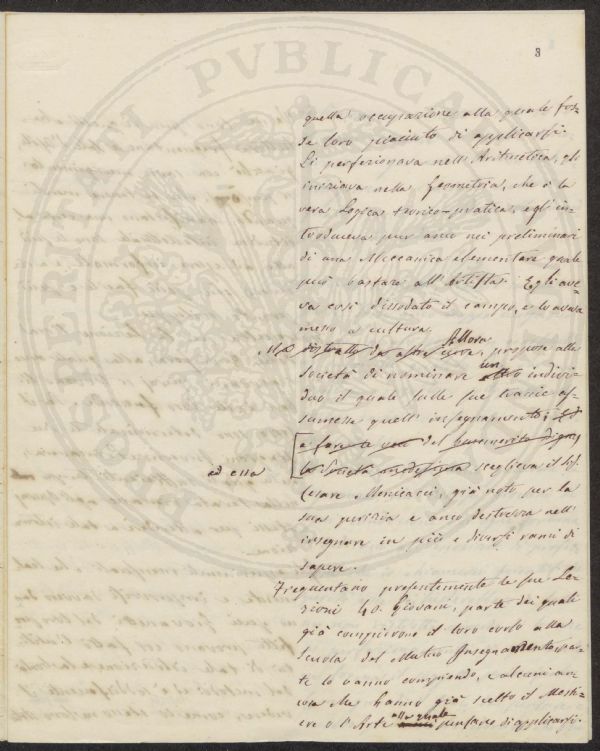 3
quella occupazione alla quale fos=
se loro piaciuto di applicarsi.
Li perfezionava nell'Aritmetica, gli
iniziava nella Geometria, che è la
vera Logica teorico-pratica, e gl'in=
troduceva pur anco nei preliminari
di una Meccanica elementare quale
può bastare all'Artista. Egli ave=
va così dissodato il campo, e lo aveva
messo a cultura.
Ma distratto da altre cure, Allora propose alla
Società di nominare un altro indivi=
duo il quale sulle sue traccie as=
sumesse quell'insegnamento; Ed
a fare le veci del benemerito
ed essa la Società medesima sceglieva il Sig.
Cesare Menicacci, già noto per la
sua perizia e anco destrezza nell'
insegnare in più e diversi rami di
sapere.
Frequentano presentemente le sue Le=
zioni 40. Giovani, parte dei quali
già compirono il loro corso alla
Scuola del Mutuo Insegnamento, par=
te lo vanno compiendo, e alcuni an=
cora che hanno già scelto il Mesti=
ere o l'Arte alla quale pensano di applicarsi.
PUBLICA